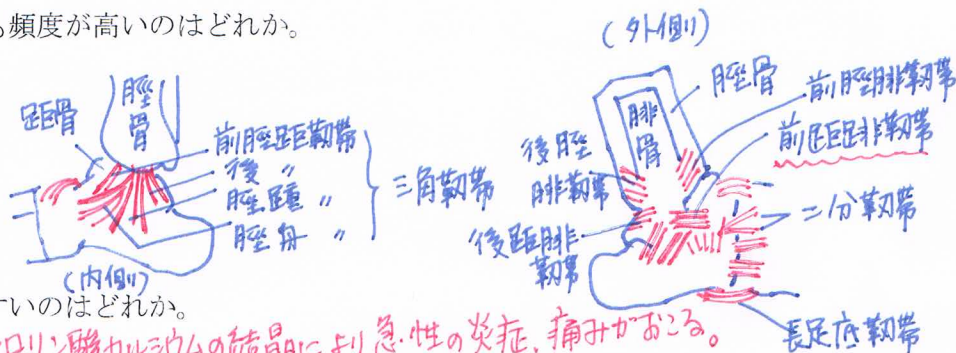 も頻度が高いのはどれか。
(外側)
脛骨
距骨
前脛距靭帯
後 〃
脛踵 〃
脛舟 〃
三角靭帯
(内側)
脛骨
腓骨
前脛腓靭帯
前距腓靭帯
後脛腓靭帯
後距腓靭帯
二分靭帯
長足底靭帯
すいのはどれか。
ロリン酸カルシウムの結晶により急性の炎症、痛みがおこる。